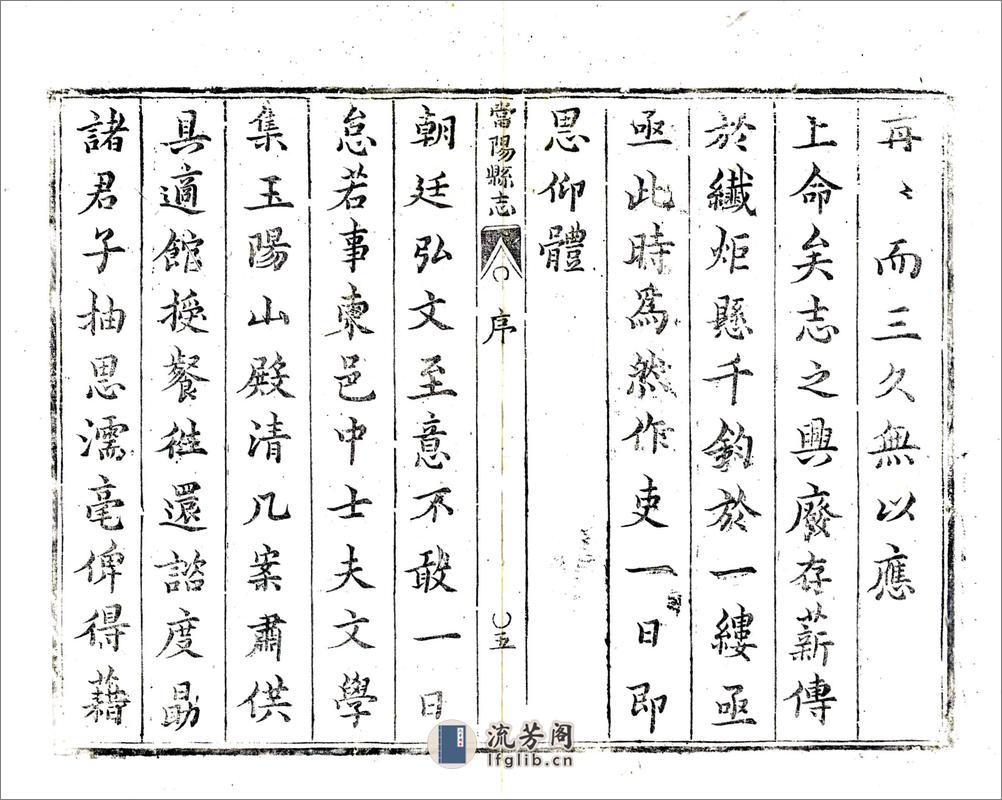 再〻而三久無以應
上命矣志之興廢存薪傳
於纖炬懸千鈞於一縷亟
亟此時為然作吏一日即
思仰體
當陽縣志
序
五
朝廷弘文至意不敢一日
怠若事柬邑中士夫文學
集玉陽山殿清几案肅供
具適館授餐往還諮度勗
諸君子抽思濡毫俾得藉
流芳阁
lfglib.cn